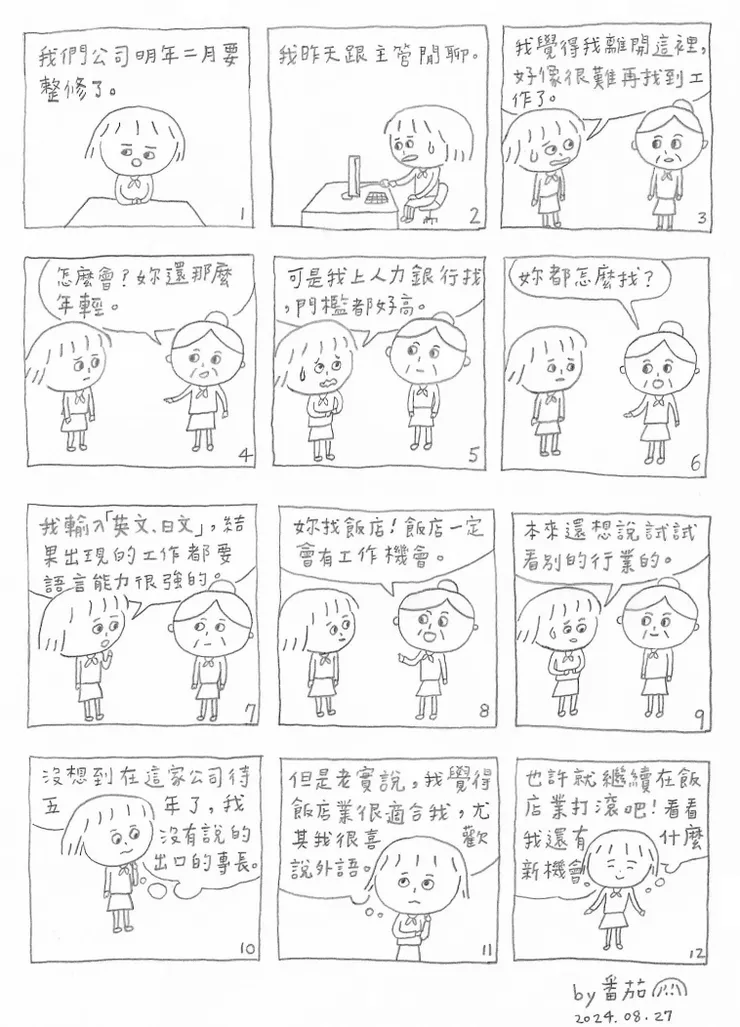 我們公司明年二月要
整修了。
1
我昨天跟主管閒聊。
2
我覺得我離開這裡，
好像很難再找到工
作了。
3
怎麼會？妳還那麼
年輕。
4
可是我上人力銀行找
，門檻都好高。
5
妳都怎麼找？
6
我輸入「英文、日文」，結
果出現的工作都要
語言能力很強的。
7
妳找飯店！飯店一定
會有工作機會。
8
本來還想說試試
看別的行業的。
9
沒想到在這家公司待
五年了，我
沒有說的
出口的專長。
10
但是老實說，我覺得
飯店業很適合我，尤
其我很喜歡
說外語。
11
也許就繼續在飯
店業打滾吧！看看
我還有什麼
新機會
12
by番茄
2024.08.27